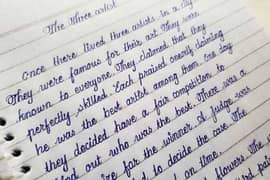 The three artist
Once there lived three artists in a city
They were famous for their art. They were
known to everyone. They claimed that they
perfectly skilled. Each praised claiming
he was the best artist among them. One day
they decided have a fair competition to
out who was the best. There was a
for the winner. A judge was
to decide the case. The
on time.
flowers. The